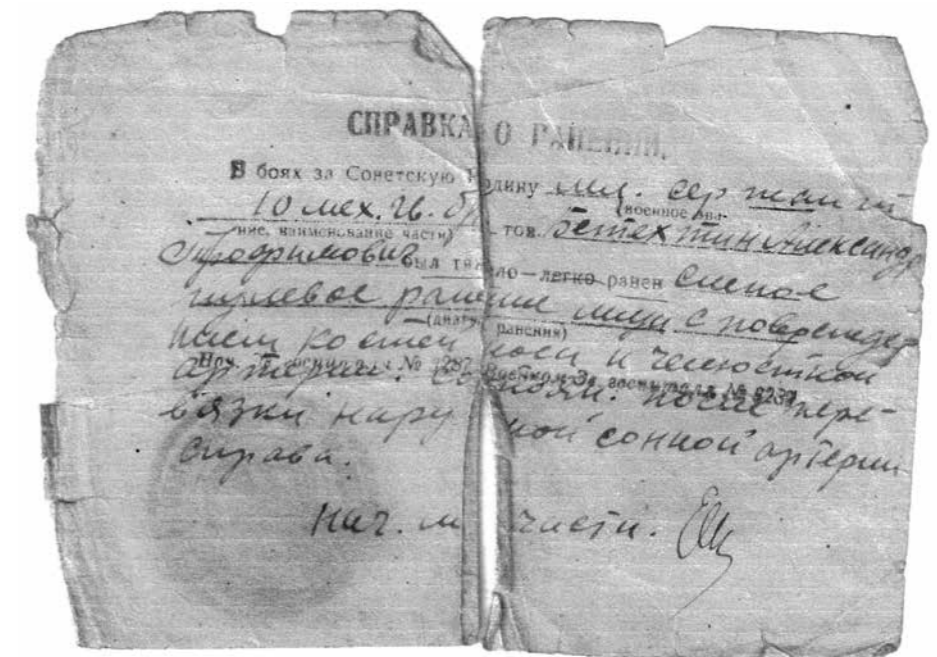 СПРАВКА О РАНЕНИИ.
В боях за Советскую Родину мл. сержант
(военное зва-
10 мех. гв. бр
ние, наименование части) тов. Бетехтин Александр
Трофимович был тяжело—легко ранен слепое
пулевое ранение лица с поврежде
(диагноз ранения)
нием костей носа и челюстной
артерии. после пере-
Нач. госпиталя № Военком Эв госпиталя № 3239
вязки наружной сонной артерии
справа.
Нач. мед части.